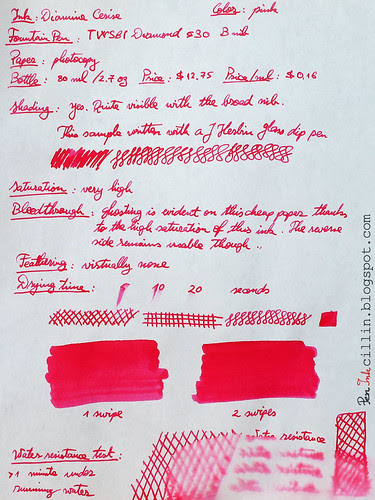 Ink: Diamine Cerise Color: pink
Fountain Pen: TWSBI Diamond 530 B nib
Paper: photocopy
Bottle: 80 ml / 2.7 oz Price: $12.75 Price/ml: $0.16
Shading: Yes. Quite visible with the broad nib.
This sample written with a J Herbin glass dip pen
Saturation: very high
Bleedthrough: Ghosting is evident on this cheap paper thanks
to the high saturation of this ink. The reverse
side remains usable though..
Feathering: virtually none
Drying time: 1 10 20 seconds
1 swipe 2 swipes
Water resistance test:
> 1 minute under
running water
Water resistance
PenInkcillin.blogspot.com